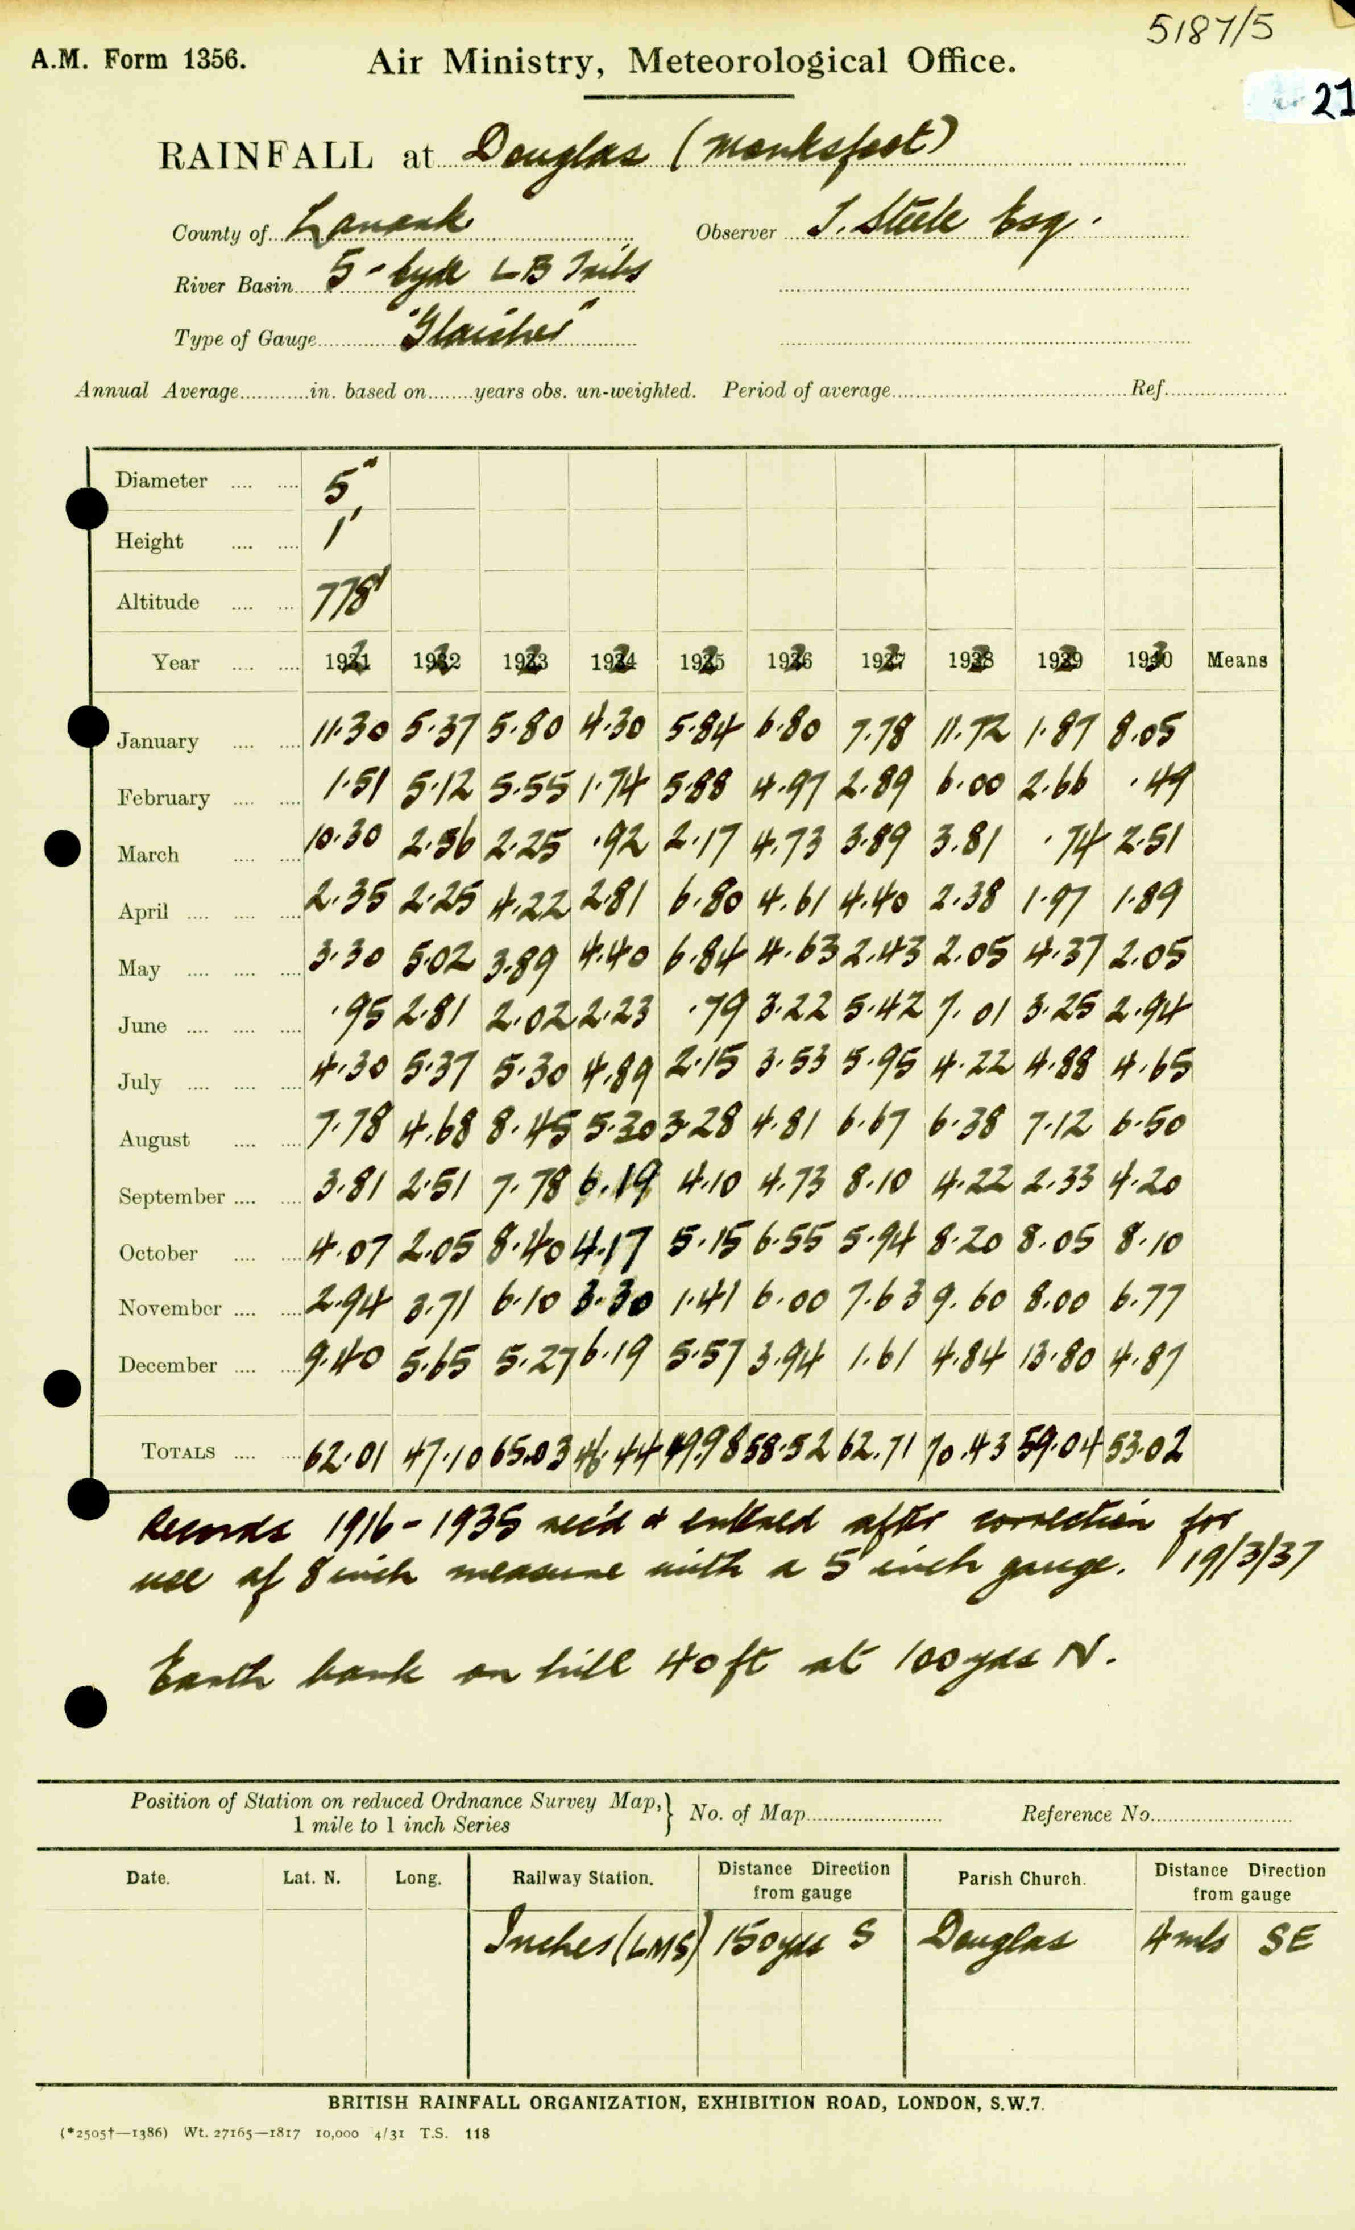 5187/5
A.M. Form 1356. Air Ministry, Meteorological Office.
21
RAINFALL at Douglas (Monksfoot)
County of Lanark Observer J. Steele Esq.
River Basin 5 - Clyde LB Tribs
Type of Gauge "Glaisher"
Annual Average in. based on years obs. un-weighted. Period of average Ref.
Diameter 5"
Height 1'
Altitude 778'
Year 1921 1922 1923 1924 1925 1926 1927 1928 1929 1930 Means
January 11.30 5.37 5.80 4.30 5.84 6.80 7.78 11.72 1.87 8.05
February 1.51 5.12 5.55 1.74 5.88 4.97 2.89 6.00 2.66 .49
March 10.30 2.56 2.25 .92 2.17 4.73 3.89 3.81 .74 2.51
April 2.35 2.25 4.22 2.81 6.80 4.61 4.40 2.38 1.97 1.89
May 3.30 5.02 3.89 4.40 6.84 4.63 2.43 2.05 4.37 2.05
June .95 2.81 2.02 2.23 .79 3.22 5.42 7.01 3.25 2.94
July 4.30 5.37 5.30 4.89 2.15 3.53 5.95 4.22 4.88 4.65
August 7.78 4.68 8.45 5.30 3.28 4.81 6.67 6.38 7.12 6.50
September 3.81 2.51 7.78 6.19 4.10 4.73 8.10 4.22 2.33 4.20
October 4.07 2.05 8.40 4.17 5.15 6.55 5.94 8.20 8.05 8.10
November 2.94 3.71 6.10 3.30 1.41 6.00 7.63 9.60 8.00 6.77
December 9.40 5.65 5.27 6.19 5.57 3.94 1.61 4.84 13.80 4.87
TOTALS 62.01 47.10 65.03 46.44 49.98 58.52 62.71 70.43 59.04 53.02
Records 1916 - 1935 rec'd & entered after correction for
use of 8 inch measure with a 5 inch gauge. 19/3/37
Earth bank on hill 40 ft at 100 yds N.
Position of Station on reduced Ordnance Survey Map,
1 mile to 1 inch Series
No. of Map Reference No.
Date. Lat. N. Long. Railway Station. Distance Direction from gauge Parish Church. Distance Direction from gauge
Inches (LMS) 150 yds S Douglas 4 mls SE
BRITISH RAINFALL ORGANIZATION, EXHIBITION ROAD, LONDON, S.W.7.
(*2505†—1386) Wt. 27165—1817 10,000 4/31 T.S. 118